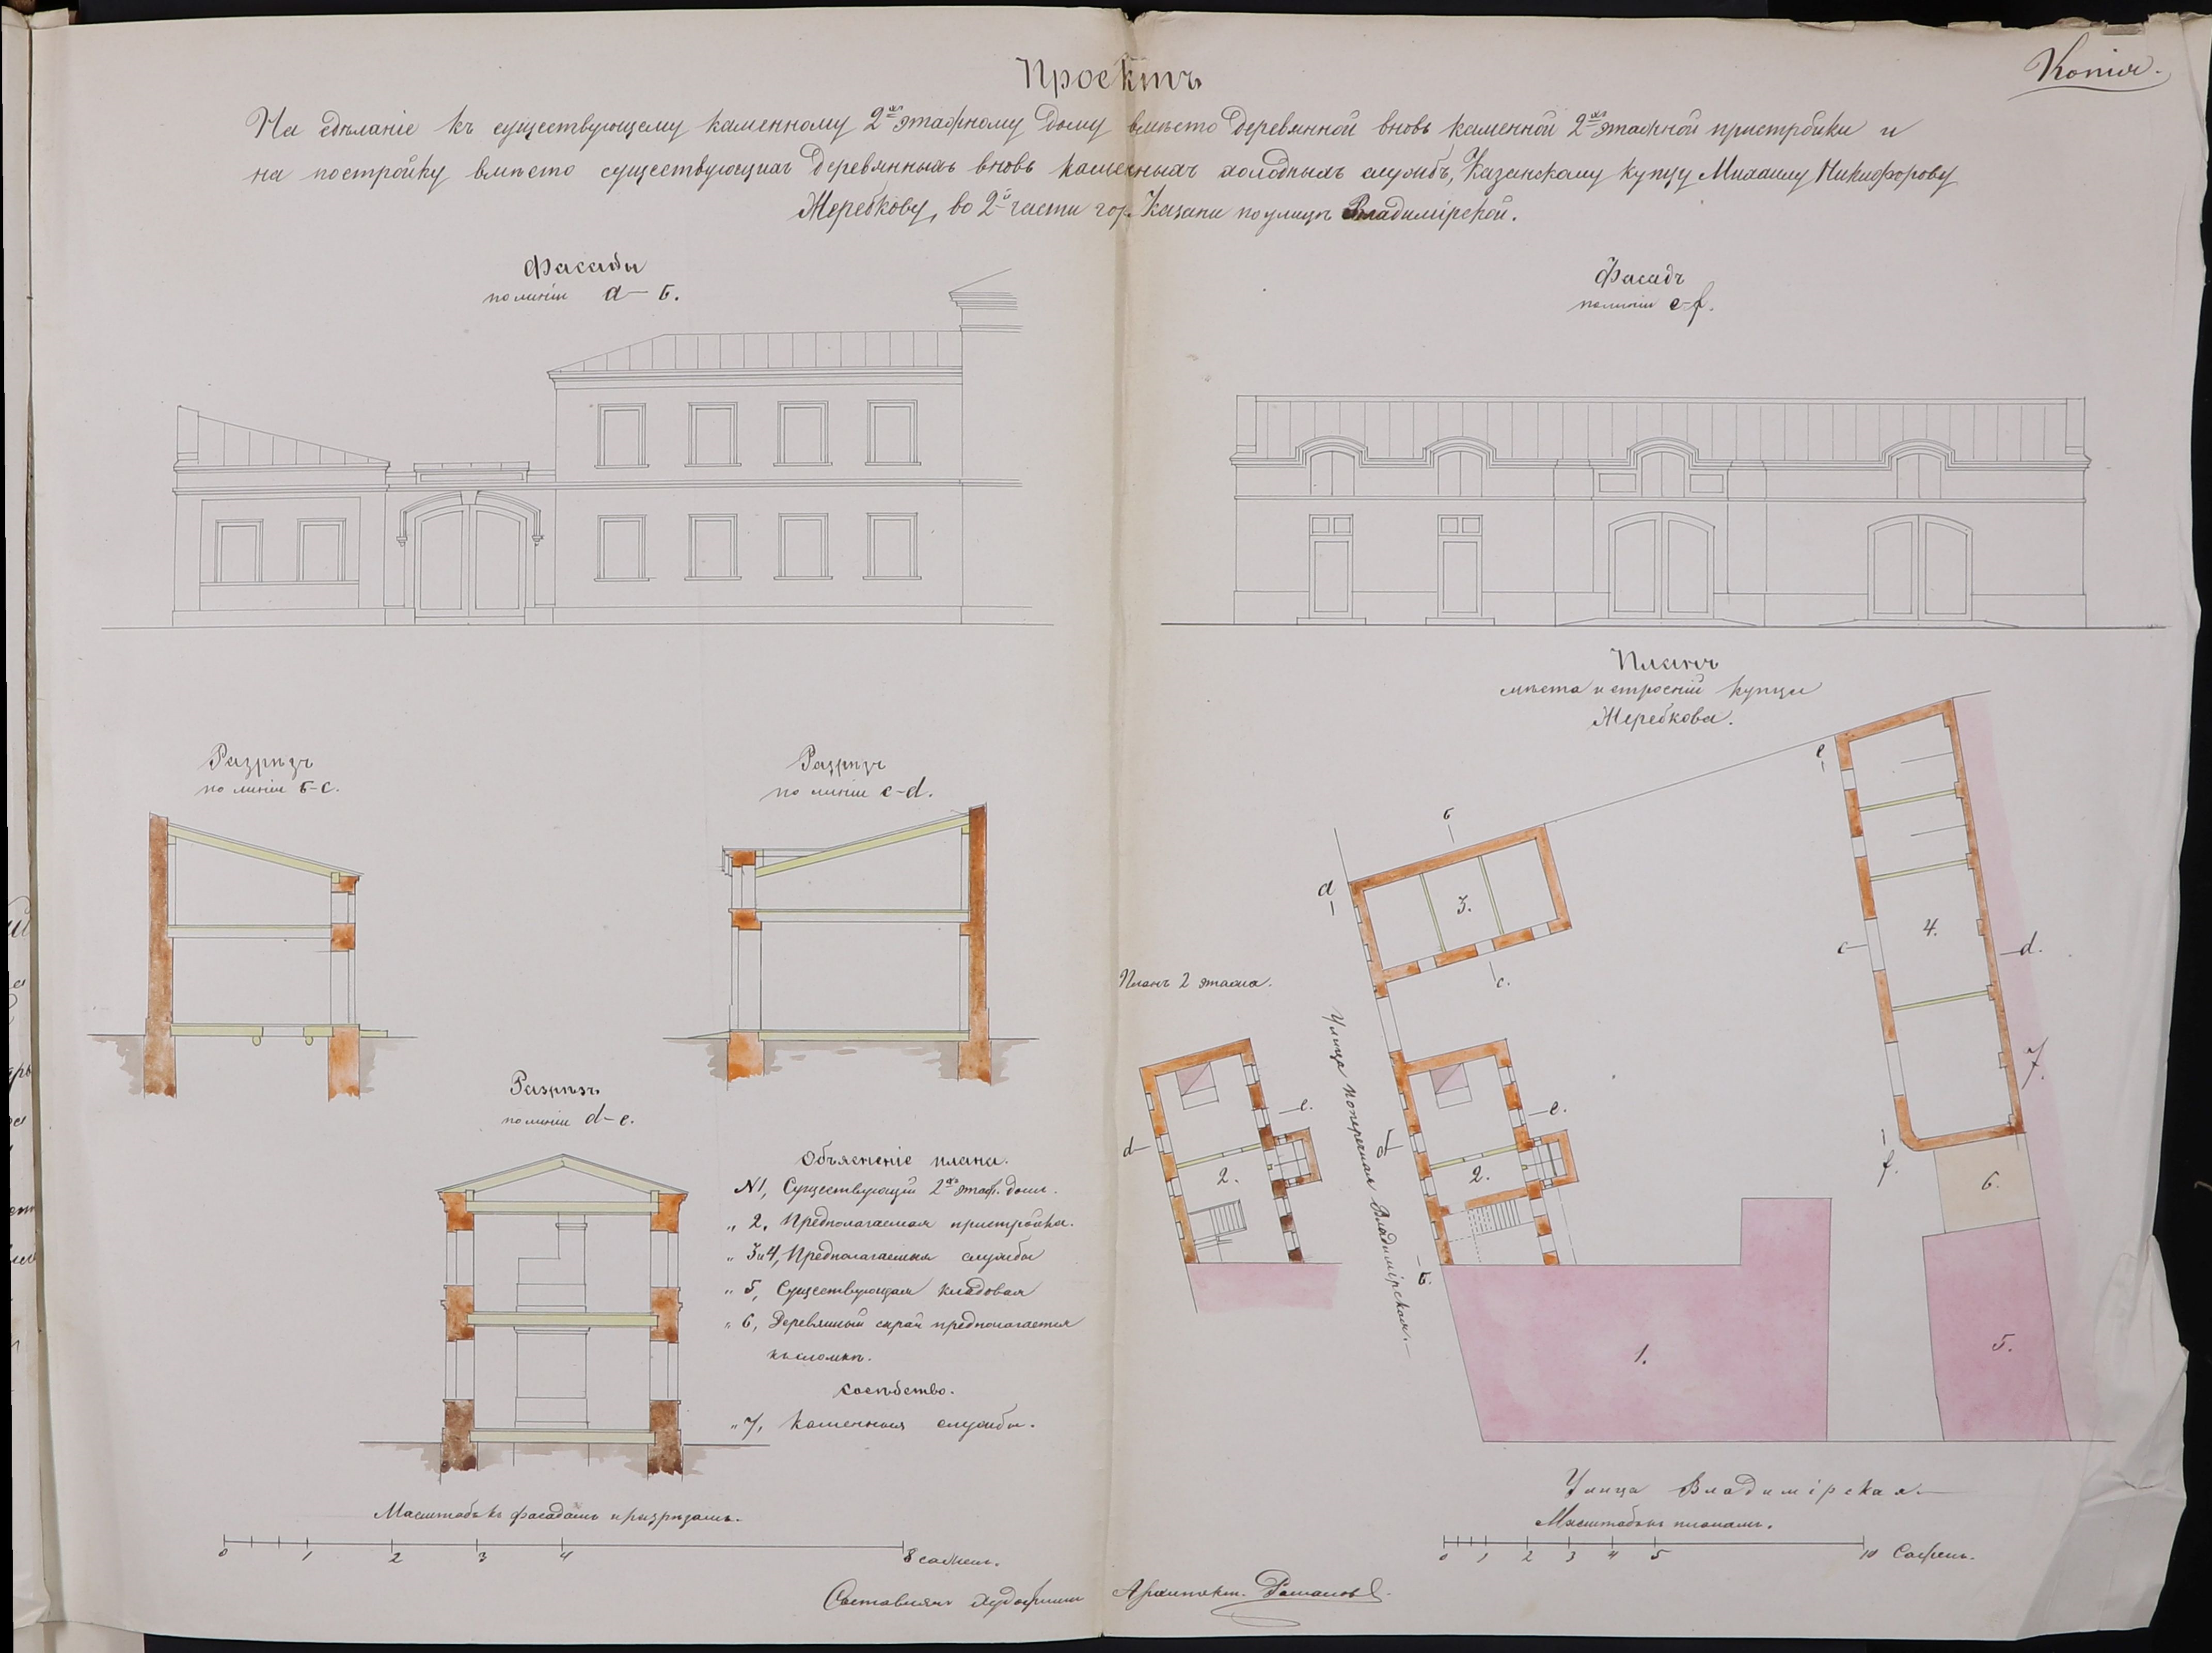 Копія.
Проектъ
На сдѣланіе къ существующему каменному 2хъ этажному дому вмѣсто деревянной вновь каменной 2хъ этажной пристройки и
на постройку вмѣсто существующихъ деревянныхъ вновь каменныхъ холодныхъ службъ, Казанскому купцу Михаилу Никифорову
Жеребкову, во 2й части гор. Казани по улицѣ Владимірской.
Фасады
по линіи а–б.
Фасадъ
по линіи e-f.
Планъ
мѣста и строеній купца
Жеребкова.
Разрѣзъ
по линіи б-с.
Разрѣзъ
по линіи c-d.
Разрѣзъ
по линіи d-e.
Объясненіе плана.
№1, Существующій 2хъ этаж. домъ.
„ 2, Предполагаемая пристройка.
„ 3и4, Предполагаемыя службы
„ 5, Существующая кладовая
„ 6, Деревянный сарай предполагается
къ сломкѣ.
Сосѣдство.
„ 7, Каменныя службы.
Планъ 2 этажа.
d
e.
2.
Улица Поперечная Владимірская.
а
б
с.
3.
d
e.
2.
б.
e
c
d.
4.
f.
7.
6.
5.
1.
Улица Владимірская
Масштабъ къ планамъ.
0 1 2 3 4 5 10 Сажень.
Масштабъ къ фасадамъ и разрѣзамъ.
0 1 2 3 4 8 сажен.
Составлялъ Художникъ Архитект. Романовъ